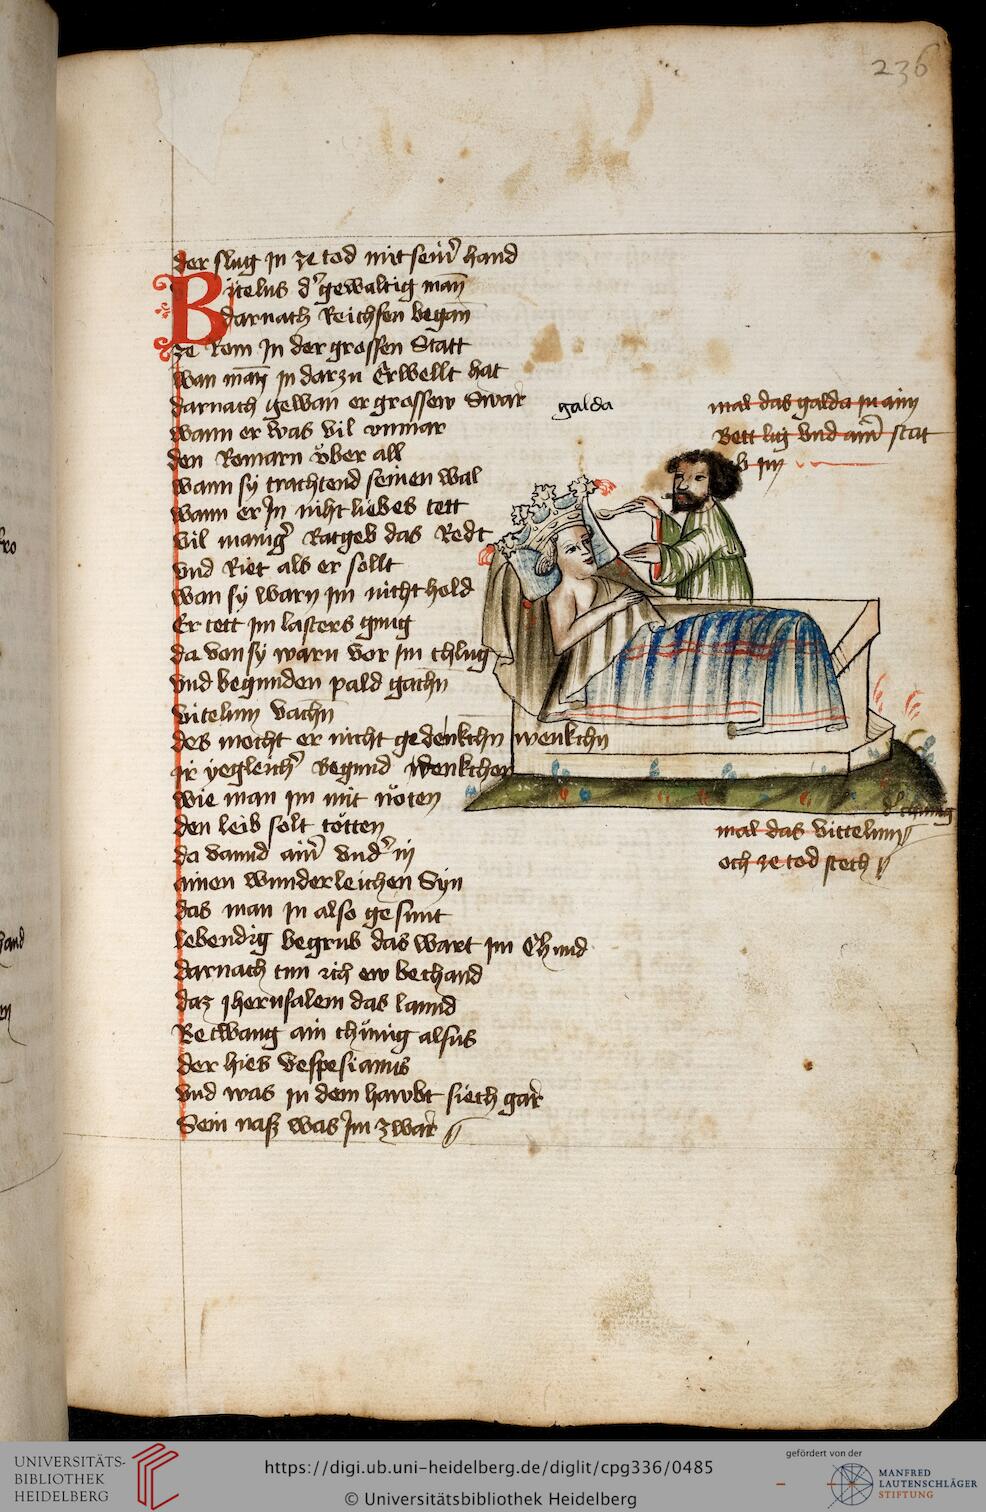 236
der slug in ze tod mit seinr̉ hand
Bitelus d' gewaltig man̄
darnach Reichsen began̄
ze Rom In der grossen Statt
wan man̄ in darzu Erwellt hat
darnach gewan er grossew Swär
wann er was vil vnmär
den Romarn v̈ber all
wann sy trachtend seinen wal
wann er In niht liebes tett
vil manig' Ratgeb das Redt
vnd Riet als er sollt
wan sy warn im nicht hold
Er tett im lasters gnug
da von sy warn vor im chlug
vnd begunden pald gachn
vitelum vachn̄
des mocht er nicht gedenkchn wenkchn
ir yegleich' Begund wenkchen
wie man im mit nöten
den leib solt tötten
da vannd ain' vnd' in
ainen wunderleichen Syn
das man in also gesunt
lebendig begrub das wart im Chund
darnach tun ich ew bechand
daz iherusalem das lannd
Betwang ain chünig alsus
der hies vespesianus
vnd was in dem hawbt siech gar
Sein nasz was Im zwar
galda
mal das galda in aim
Bett lig vnd ain' stat
b im
d' chunig
mal das vittelum
och ze tod stech
fro
hand
UNIVERSITÄTS-
BIBLIOTHEK
HEIDELBERG
https://digi.ub.uni-heidelberg.de/diglit/cpg336/0485
© Universitätsbibliothek Heidelberg
gefördert von der
MANFRED
LAUTENSCHLÄGER
STIFTUNG